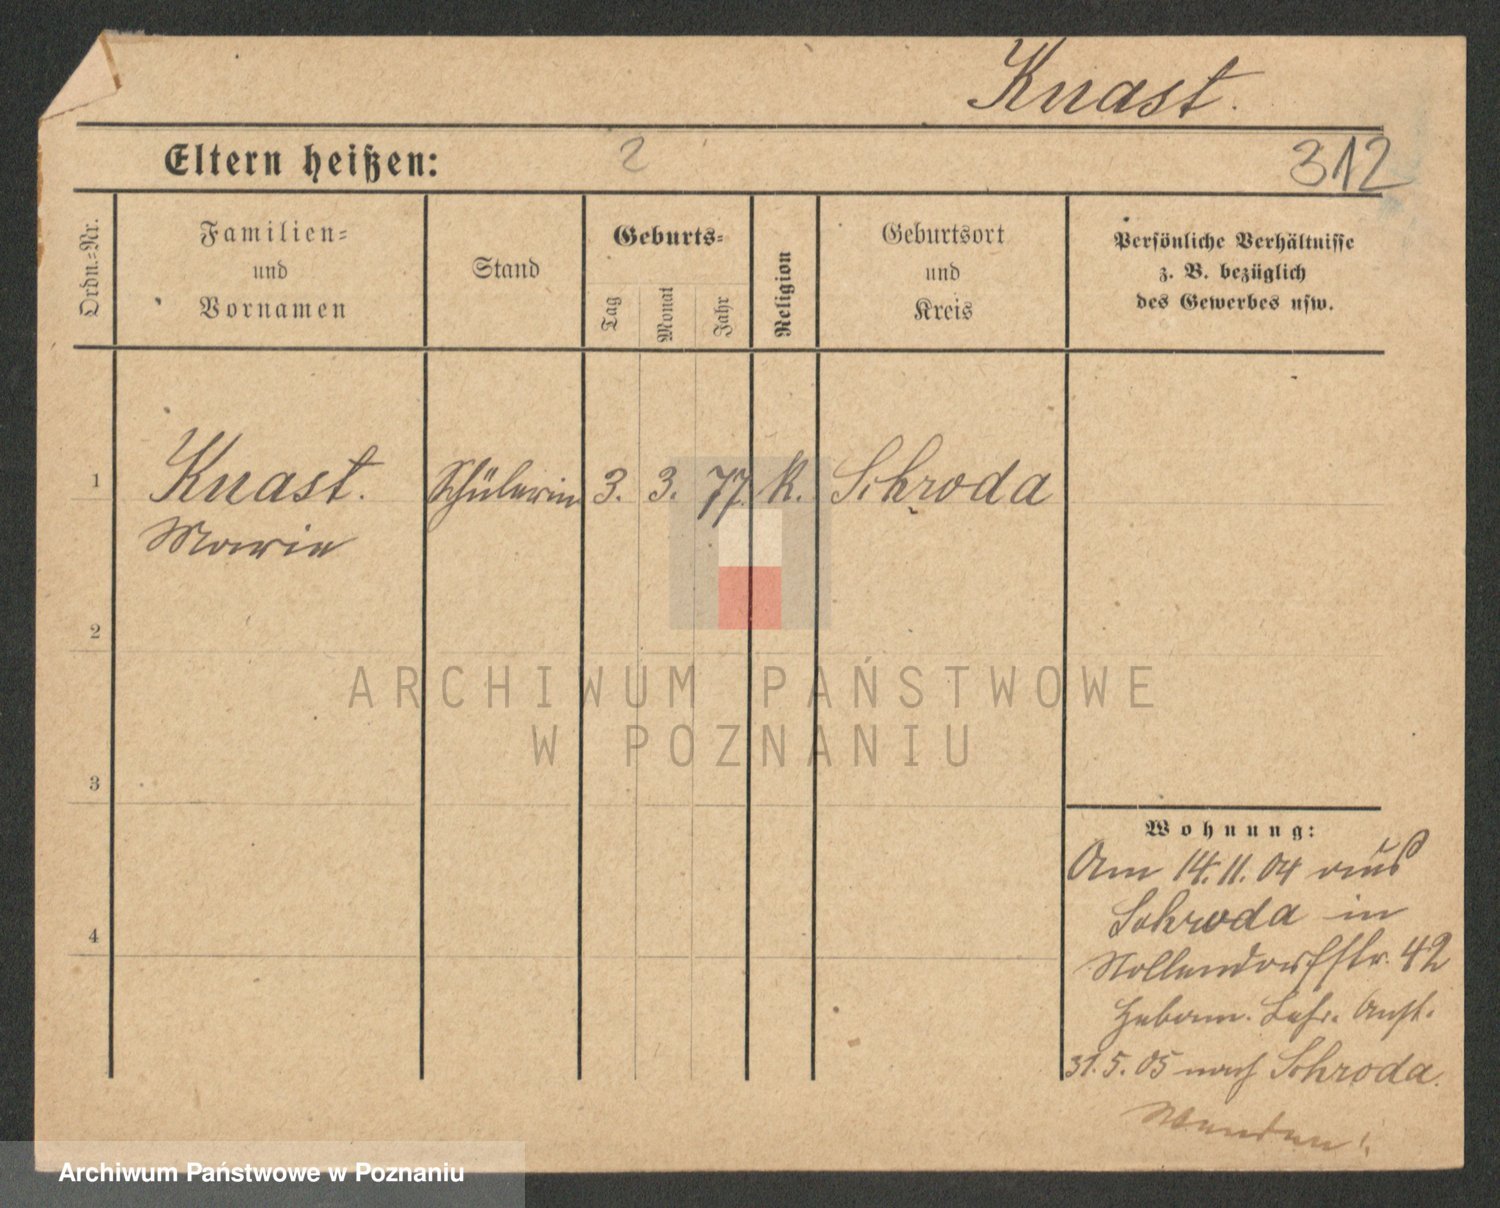 Knast.
Eltern heißen: 2 312
Ordn.-Nr.
Familien-
und
Vornamen
Stand
Geburts-
Tag
Monat
Jahr
Religion
Geburtsort
und
Kreis
Persönliche Verhältnisse
z. B. bezüglich
des Gewerbes usw.
1 Knast. Schülerin 3. 3. 77. K. Schroda
Marie
2
3
4
Wohnung:
Am 14.11.04 aus
Schroda in
Nollendorfstr. 42
Hebam. Lehr. Anst.
31.5.05 nach Schroda.
Wenden!
ARCHIWUM PAŃSTWOWE
W POZNANIU
Archiwum Państwowe w Poznaniu